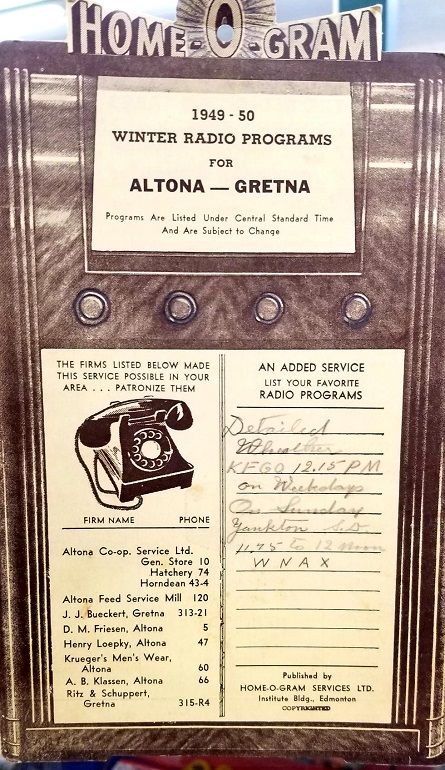 HOME-O-GRAM
1949 - 50
WINTER RADIO PROGRAMS
FOR
ALTONA — GRETNA
Programs Are Listed Under Central Standard Time
And Are Subject to Change
THE FIRMS LISTED BELOW MADE
THIS SERVICE POSSIBLE IN YOUR
AREA . . . PATRONIZE THEM
FIRM NAME PHONE
Altona Co-op. Service Ltd.
Gen. Store 10
Hatchery 74
Horndean 43-4
Altona Feed Service Mill 120
J. J. Bueckert, Gretna 313-21
D. M. Friesen, Altona 5
Henry Loepky, Altona 47
Krueger's Men's Wear,
Altona 60
A. B. Klassen, Altona 66
Ritz & Schuppert,
Gretna 315-R4
AN ADDED SERVICE
LIST YOUR FAVORITE
RADIO PROGRAMS
Detailed
Wheather
KFGO 12.15 PM
on Weekdays
On Sunday
Yankton S.D.
to 12 noon
WNAX
Published by
HOME-O-GRAM SERVICES LTD.
Institute Bldg., Edmonton
COPYRIGHTED